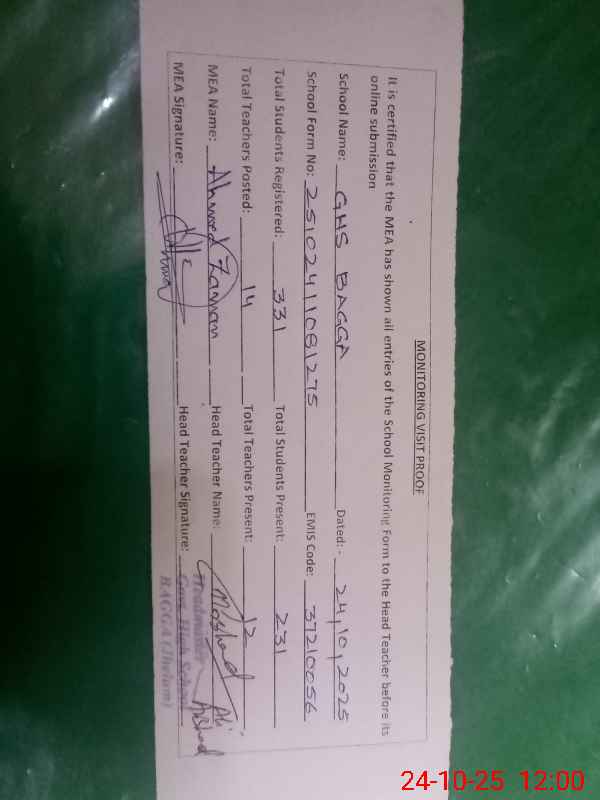 MONITORING VISIT PROOF
It is certified that the MEA has shown all entries of the School Monitoring Form to the Head Teacher before its
online submission
School Name: GHS BAGGA Dated: - 24,10,2025
School Form No: 25102411081275 EMIS Code: 37210056
Total Students Registered: 331 Total Students Present: 231
Total Teachers Posted: 14 Total Teachers Present: 12
MEA Name: Ahmed Zaman Head Teacher Name: Ali
MEA Signature: Head Teacher Signature: Arshad
Headmaster
Govt. High School
BAGGA (Jhelum)
24-10-25 12:00